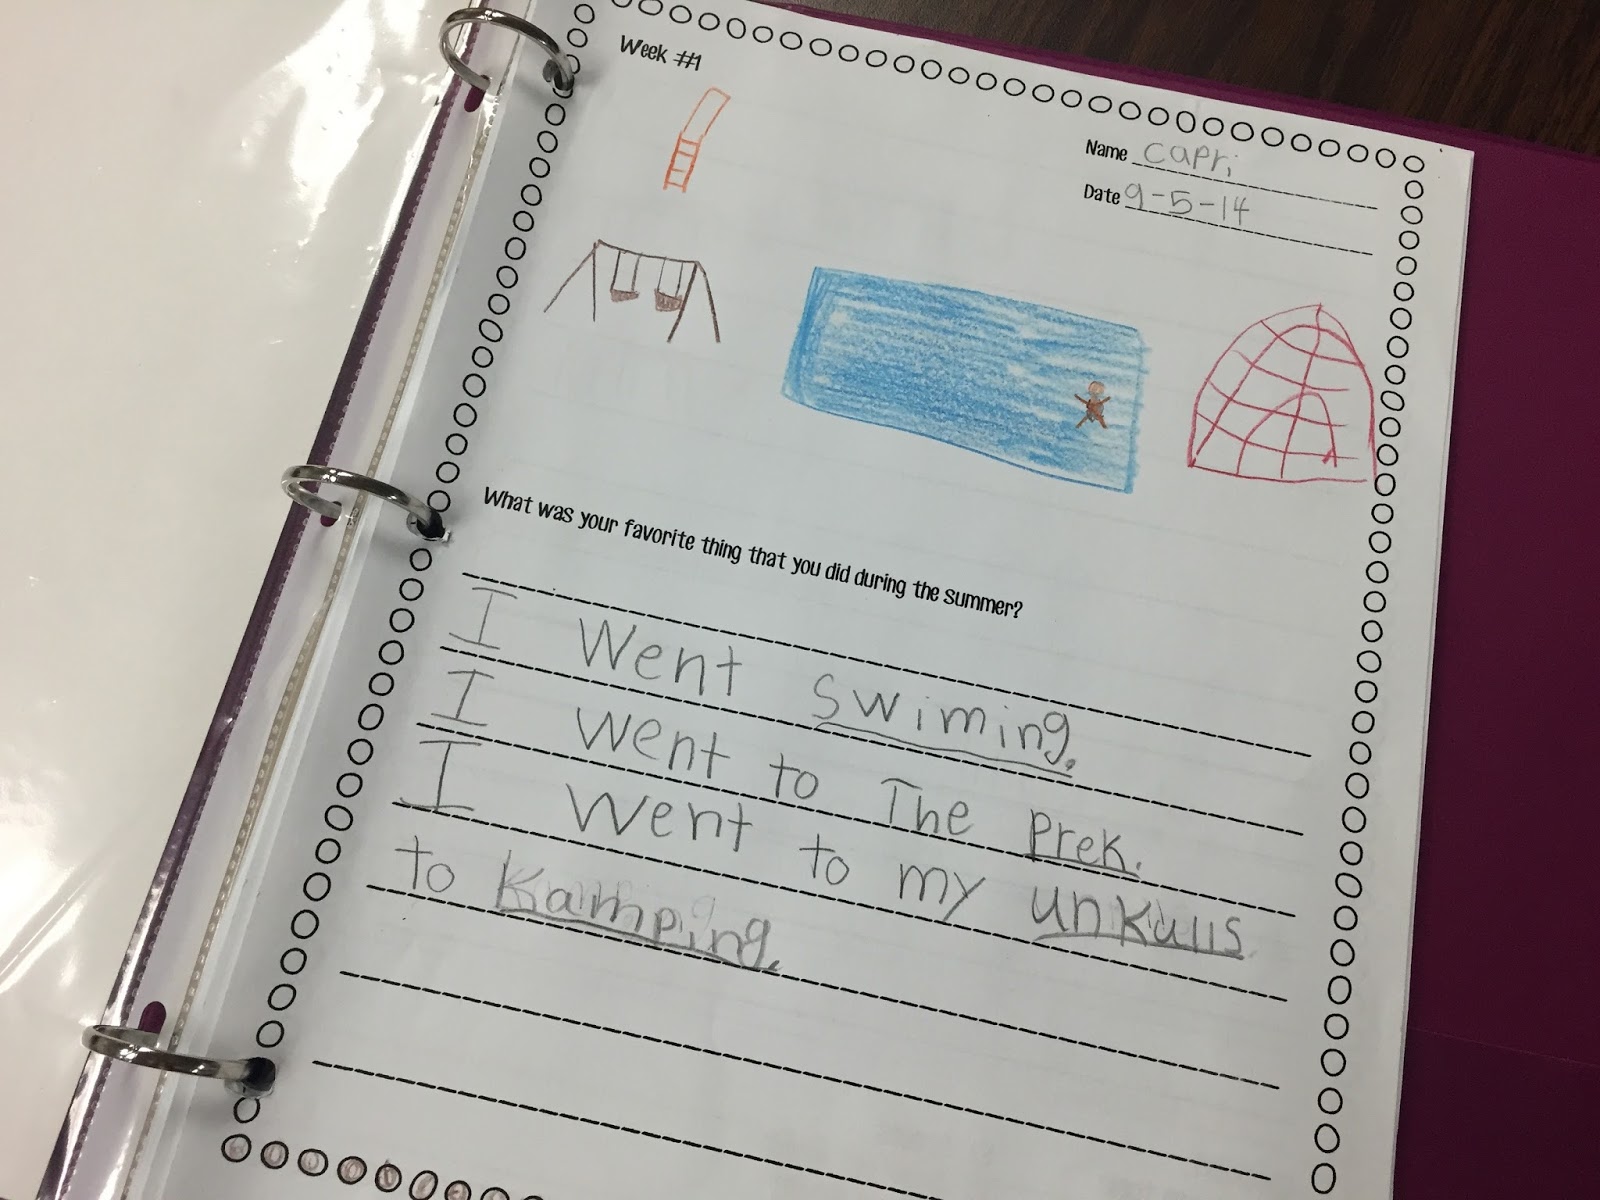 Week #1
Name Capri
Date 9-5-14
What was your favorite thing that you did during the summer?
I Went swiming.
I went to The Prek.
I went to my unkulls
to Kamping.